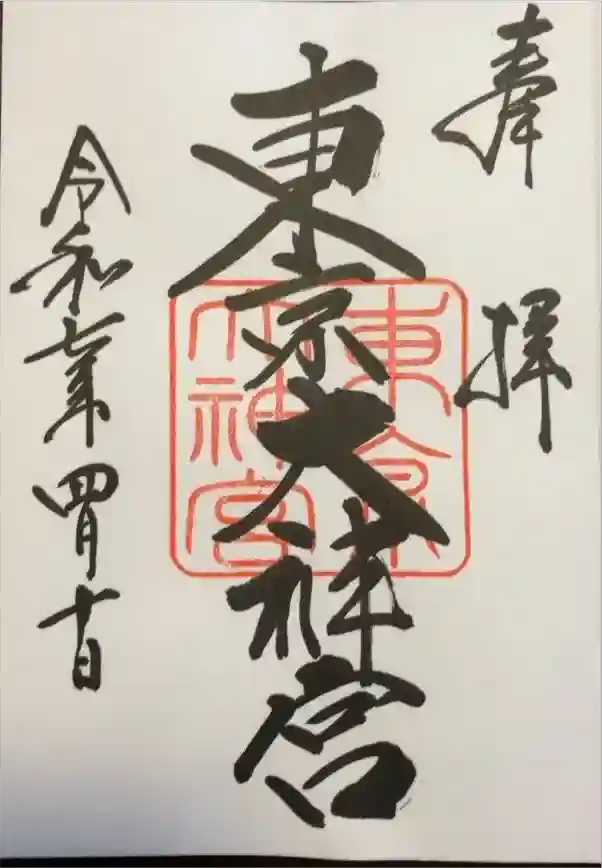 奉拝
東京大神宮
東京大神宮
令和七年四月十日